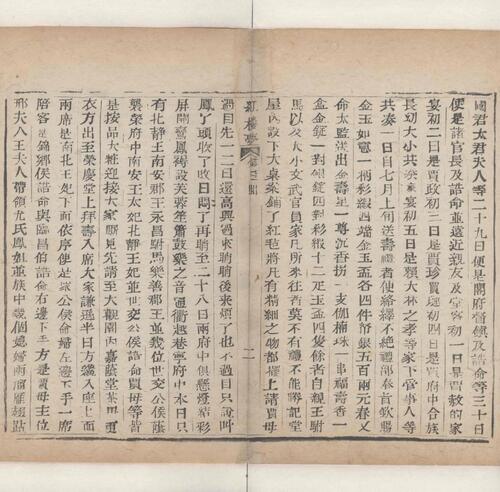 國君太君夫人等二十九日便是閣府督鎮及誥命等三十日
便是諸官長及誥命並遠近親友及堂客初一日是賈赦的家
宴初二日是賈政初三日是賈珍賈璉初四日是賈府中合族
長幼大小共湊家宴初五日是賴大林之孝等家下管事人等
共湊一日自七月上旬送壽禮者便絡繹不絕禮部奉旨欽賜
金玉如意一柄彩緞四端金玉盃各四件帑銀五百兩元春又
命太監送出金壽星一尊沉香拐一支伽楠珠一串福壽香一
盒金錠一對銀錠四對彩緞十二疋玉盃四隻餘者自親王駙
馬以及大小文武官員家凡所來往者莫不有禮不能勝記堂
屋內設下大桌案鋪了紅毡將凡有精細之物都擺上請賈母
紅樓夢 二
過目先一二日還高興過來瞧瞧後來煩了也不過目只說叫
鳳丫頭收了改日悶了再瞧至二十八日兩府中俱懸燈結彩
屏開鸞鳳褥設芙蓉笙簫鼓樂之音通衢越巷寧府中本日只
有北靜王南安郡王永昌駙馬樂善郡王並幾位世交公侯蔭
襲榮府中南安王太妃北靜王妃並世交公侯誥命賈母等皆
是按品大粧迎接大家厮見先請至大觀園內嘉蔭堂茶畢更
衣方出至榮慶堂上拜壽入席大家謙遜半日方纔入座上面
兩席是南北王妃下面依序便是眾公侯命婦左邊下手一席
陪客是錦鄉侯誥命與臨昌伯誥命右邊下手方是賈母主位
邢夫人王夫人帶領尤氏鳳姐並族中幾個媳婦兩溜雁翅站